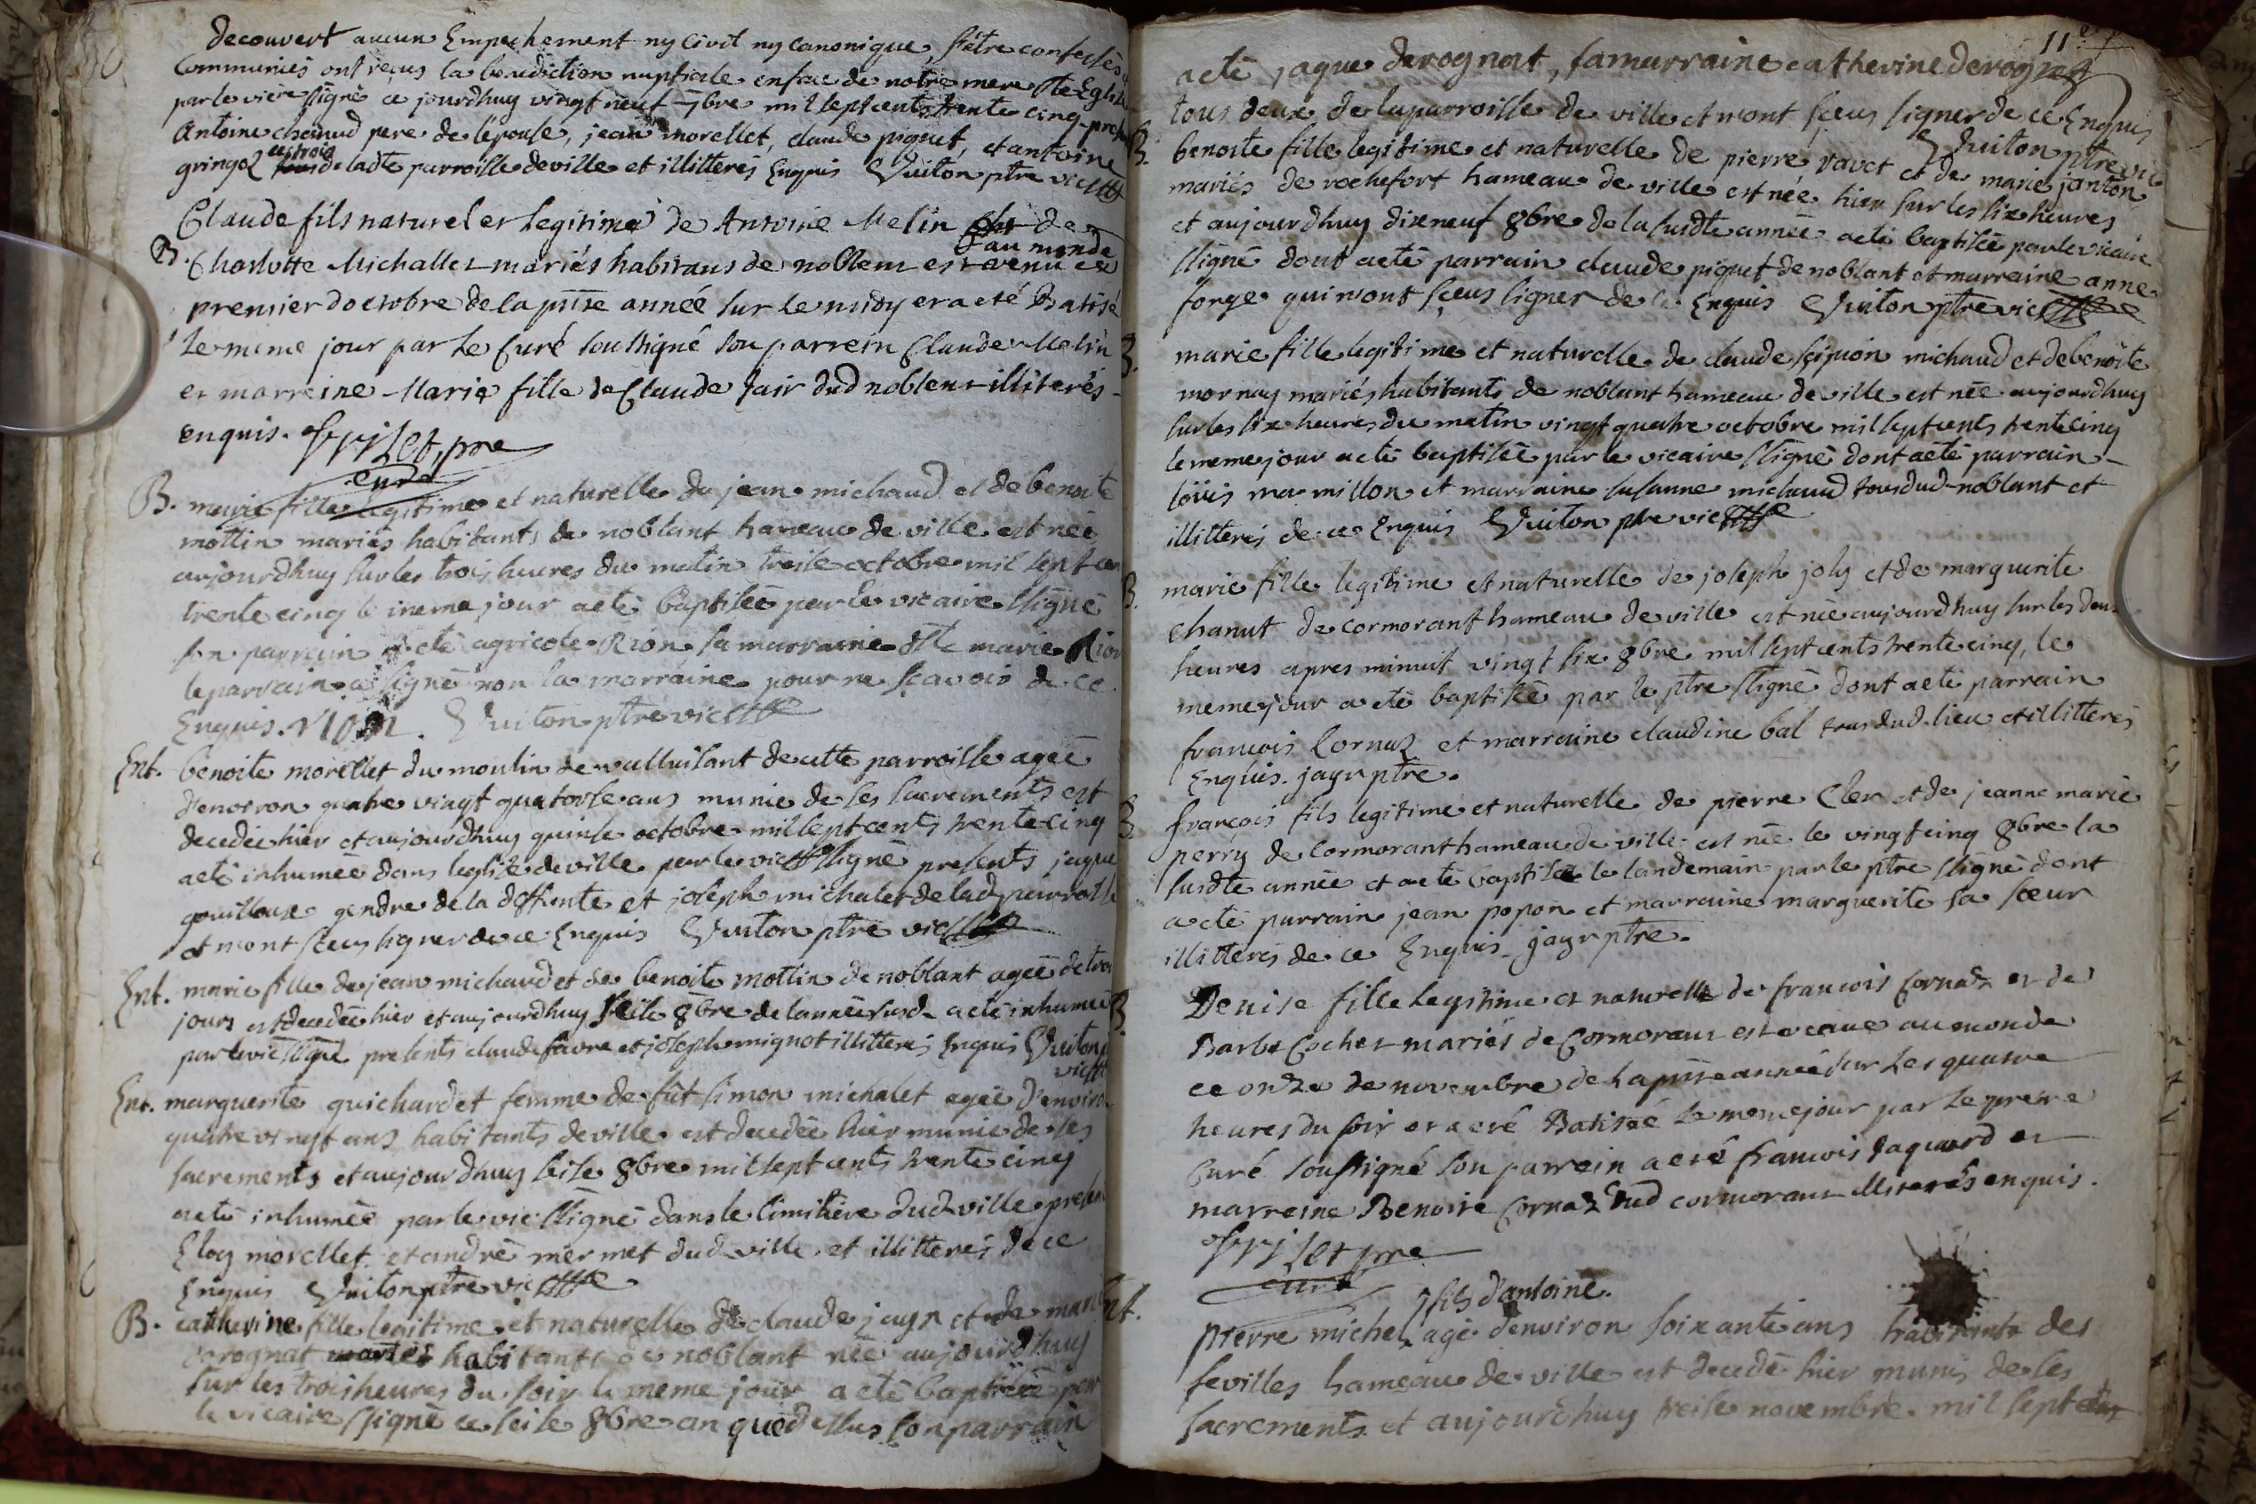 decouvert aucun Empechement ny civil ny canonique, s'être confessés
communiés ont reçus la benediction nuptiale en face de notre mere ste Eglise
par le vicre ssigné ce jourdhuy vingt neuf 7bre mil sept cents trente cinq
Antoine chanud pere de lépouse, jean morellet, claude piquet, et antoine
gringoz ces trois de ladte parroisse de ville et illitterés Enquis Vuiton ptre vic
Claude fils naturel et legitime de Antoine Melin de
B. Charlotte Michallet mariés habitans de noblens est venu au monde
premier d'octobre de la pnte année sur le midy et a eté Batisé
Le meme jour par Le Curé soussigné son parrein Claude Melin
et marreine Marie fille de Claude Jair dud noblens illiterés
enquis. pre
curé
B. marie fille legitime et naturelle de jean michaud et de benoite
mottin mariés habitants de noblant hameau de ville est née
aujourdhuy sur les trois heures du matin treise octobre mil sept cen
trente cinq le meme jour a eté baptisée par le vicaire ssigné
son parrain a eté agricole Rion sa marraine dlle marie Rion
le parrain a signé non la marraine pour ne scavoir de ce
Enquis. rion. Vuiton ptre vic
Ent. benoite morellet du moulin de valluisant de cette parroisse ageé
d'environ quatre vingt quatorse ans munie de ses sacrements est
decedée hier et aujourdhuy quinse octobre mil sept cents trente cinq
a eté inhumée dans leglise de ville par le vic ssigné presents jaque
gouilloux gendre de la deffunte et joseph michalet de lad parroisse
et n'ont sceus signer de ce Enquis Vuiton ptre vic
Ent. marie fille de jean michaud et de benoite mottin de noblant ageé de trois
jours est decedée hier et aujourdhuy seise 8bre de lannée susd a eté inhumée
par le vic ssigné presents claude favre et joseph mignot illitterés Enquis Vuiton
vic
Ent. marguerite guichardet femme de fût simon michalet ageé d'environ
quatre vingt ans habitants de ville est decedée hier munie de ses
sacrements et aujourdhuy seise 8bre mil sept cents trente cinq
a eté inhumée par le vic ssigné dans le cimitière dud ville presents
Eloy morellet et andré mermet dud ville et illitterés de ce
Enquis Vuiton ptre vic
B. catherine fille legitime et naturelle de claude jayr et de marie
derognat habitants de noblant née aujourdhuy
sur les trois heures du soir le meme jour a eté baptisée par
le vicaire ssigné ce seise 8bre an que dessus son parrain
11e
a eté jaque derognat, sa marraine catherine derognat
tous deux de la parroisse de ville et n'ont sceus signer de ce Enquis
Vuiton ptre vic
B. benoite fille legitime et naturelle de pierre ravet et de marie janton
mariés de rochefort hameau de ville est née hier sur les six heures
et aujourdhuy dixneuf 8bre de la susdte année a eté baptisée par le vicaire
ssigné dont a eté parrain claude piquet de noblant et marraine anne
forge qui n'ont sceus signer de ce Enquis Vuiton ptre vic
B. marie fille legitime et naturelle de claude scipion michaud et de benoite
mornay mariés habitants de noblant hameau de ville est née aujourdhuy
sur les six heures du matin vingt quatre octobre mil sept cents trente cinq
le meme jour a eté baptisée par le vicaire ssigné dont a eté parrain
loüis mamillon et marraine susanne michaud tous dud noblant et
illitterés de ce Enquis Vuiton ptre vic
B. marie fille legitime et naturelle de joseph joly et de marguerite
chanut de cormorant hameau de ville est née aujourdhuy sur les deux
heures apres minuit vingt six 8bre mil sept cents trente cinq, le
meme jour a eté baptisée par le ptre ssigné dont a eté parrain
francois Cornaz et marraine claudine bal tous dud lieu et illitterés
Enquis. jayr ptre.
B. francois fils legitime et naturelle de pierre Cler et de jeanne marie
perry de Cormorant hameau de ville est née le vingt cinq 8bre la
susdte année et a eté baptisé le landemain par le ptre ssigné dont
a eté parrain jean popon et marraine marguerite sa sœur
illitterés de ce Enquis jayr ptre.
B. Denise fille legitime et naturelle de francois Cornaz et de
Barbe Cochet mariés de Cormorant est venue au monde
ce onze de novembre de la pnte année sur Les quatre
heures du soir et a eté Batisée Le meme jour par Le pretre
Curé soussigné son parrein a eté francois Jaquard et
marreine Benoite Cornaz dud cormorant illiterés enquis.
pre
curé
fils d'antoine.
Ent. pierre michel agé d'environ soixante ans habitants des
fevilles hameau de ville est decedé hier munis de ses
sacrements et aujourdhuy treise novembre mil sept cents